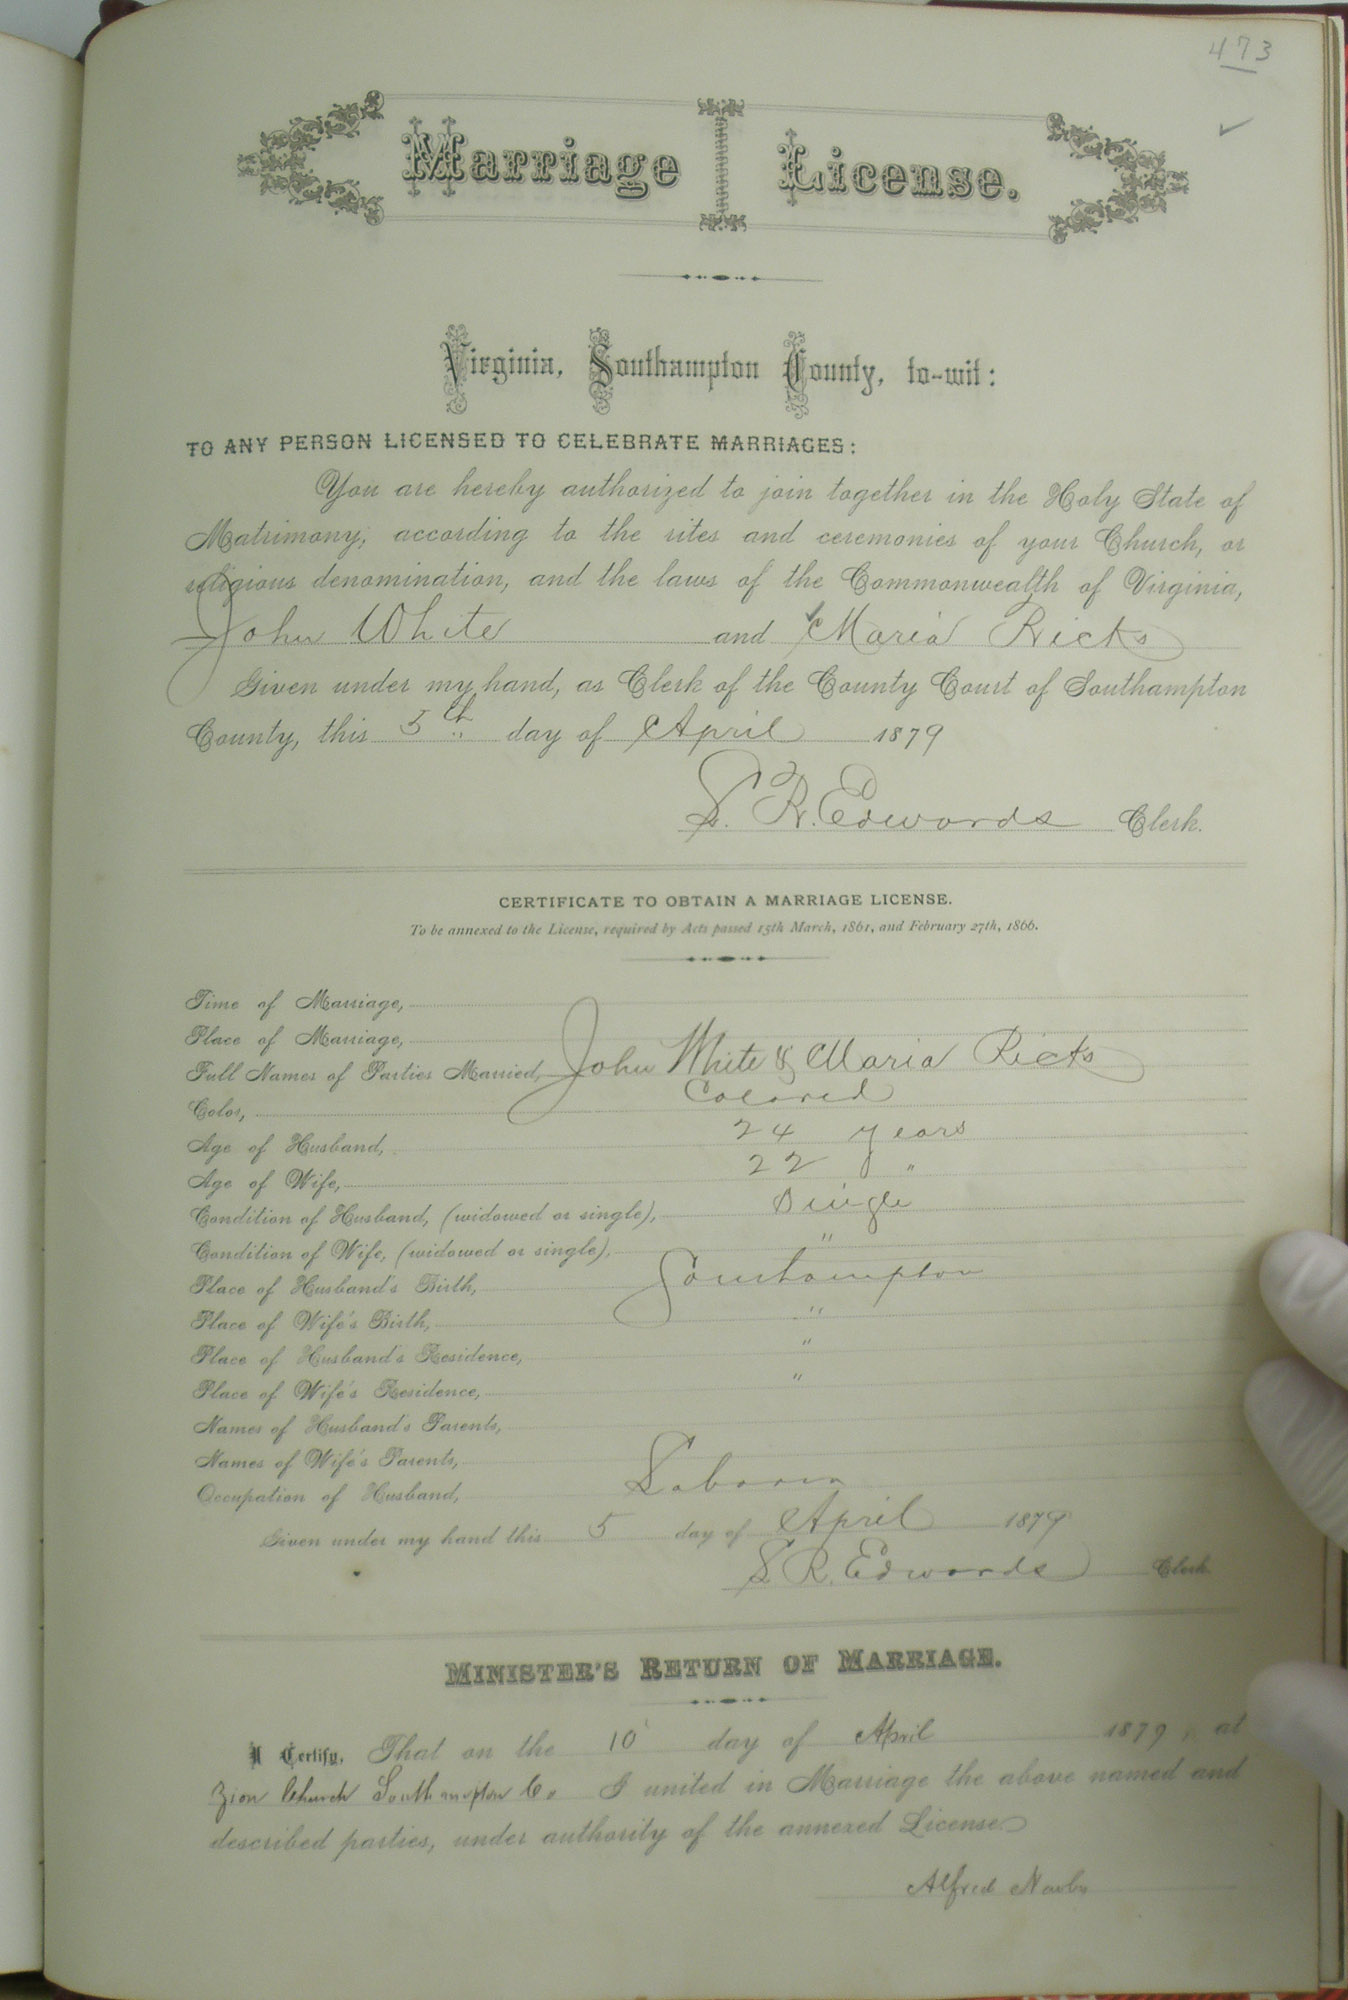 473
Marriage License.
Virginia, Southampton County, to-wit:
TO ANY PERSON LICENSED TO CELEBRATE MARRIAGES:
You are hereby authorized to join together in the Holy State of
Matrimony, according to the rites and ceremonies of your Church, or
religious denomination, and the laws of the Commonwealth of Virginia,
John White and Maria Ricks
Given under my hand, as Clerk of the County Court of Southampton
County, this 5th day of April 1879
L. R. Edwards Clerk.
CERTIFICATE TO OBTAIN A MARRIAGE LICENSE.
To be annexed to the License, required by Acts passed 15th March, 1861, and February 27th, 1866.
Time of Marriage,
Place of Marriage,
Full Names of Parties Married, John White & Maria Ricks
Color, Colored
Age of Husband, 24 years
Age of Wife, 22 "
Condition of Husband, (widowed or single), Single
Condition of Wife, (widowed or single), "
Place of Husband's Birth, Southampton
Place of Wife's Birth, "
Place of Husband's Residence, "
Place of Wife's Residence, "
Names of Husband's Parents,
Names of Wife's Parents,
Occupation of Husband, Laborer
Given under my hand this 5 day of April 1879
L. R. Edwards Clerk.
MINISTER'S RETURN OF MARRIAGE.
I Certify, That on the 10 day of April 1879, at
Zion Church Southampton Co. I united in Marriage the above named and
described parties, under authority of the annexed License.
Alfred Newby